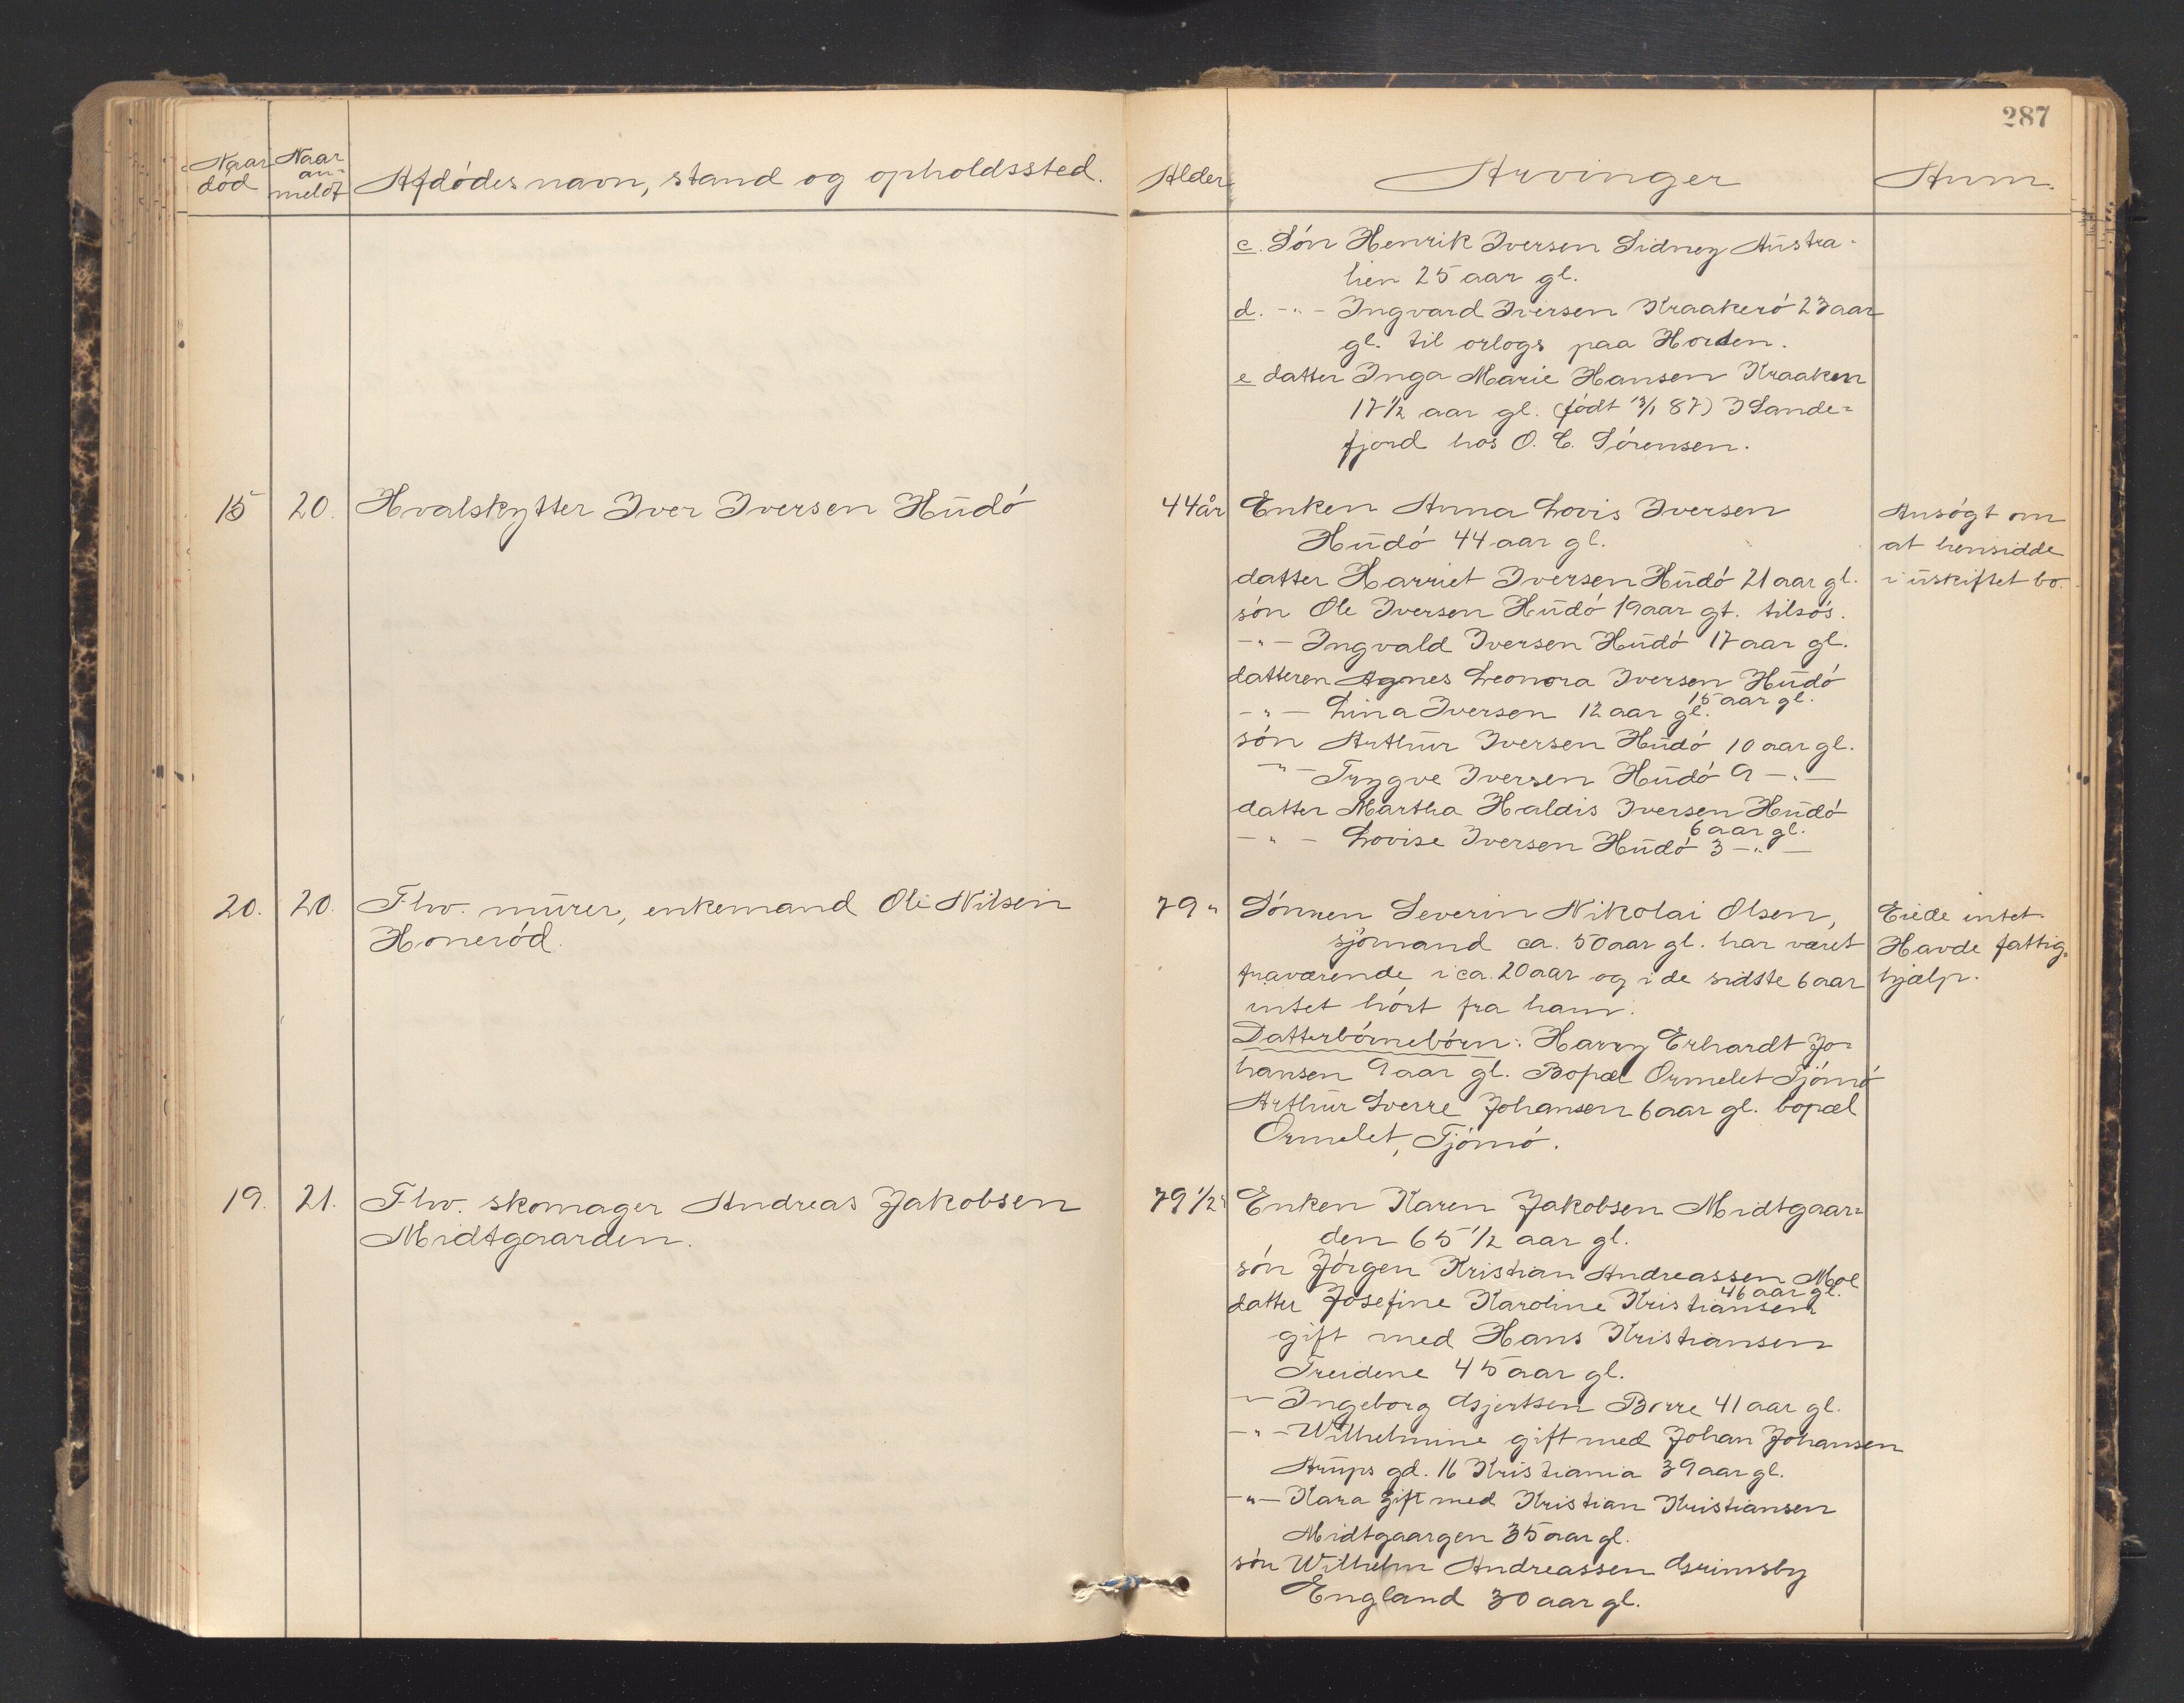 287
Naar død
Naar an-meldt
Afdødes navn, stand og opholdssted.
Alder
Arvinger
Anm.
c. Søn Henrik Iversen Sidney Austra-
lien 25 aar gl.
d. -"- Ingvard Iversen Kraakerø 23 aar
gl. til orlogs paa Horten.
e datter Inga Marie Hansen Kraaken
17 1/2 aar gl. (født 13/1 87) I Sande-
fjord hos O. C. Sørensen.
15 20. Hvalskytter Iver Iversen Hudø
44 år Enken Anna Lovis Iversen
Hudø 44 aar gl.
datter Harriet Iversen Hudø 21 aar gl.
søn Ole Iversen Hudø 19 aar gt. tilsøs.
-"- Ingvald Iversen Hudø 17 aar gl.
datteren Agnes Leonora Iversen Hudø
15 aar gl.
-"- Lina Iversen 12 aar gl.
søn Arthur Iversen Hudø 10 aar gl.
-"- Trygve Iversen Hudø 9 -"-
datter Martha Haldis Iversen Hudø
6 aar gl.
-"- Lovise Iversen Hudø 3 -"-
Ansøgt om
at hensidde
i uskiftet bo.
20. 20. Fhv. murer, enkemand Ole Nilsen
Honerød.
79 " Sønnen Severin Nikolai Olsen,
sjømand ca. 50 aar gl. har været
fraværende i ca. 20 aar og i de sidste 6 aar
intet hørt fra ham.
Datterbørnebørn: Harry Erhardt Jo-
hansen 9 aar gl. Bopæl Ormelet Tjømø
Arthur Sverre Johansen 6 aar gl. bopæl
Ormelet, Tjømø.
Eiede intet.
Havde fattig-
hjælp.
19. 21. Fhv. skomager Andreas Jakobsen
Midtgaarden.
79 1/2 " Enken Karen Jakobsen Midtgaar-
den 65 1/2 aar gl.
søn Jørgen Kristian Andreassen Moe
46 aar gl.
datter Josefine Karoline Kristiansen
gift med Hans Kristiansen
Treidene 45 aar gl.
-"- Ingeborg Gjertsen Borre 41 aar gl.
-"- Wilhelmine gift med Johan Johansen
Arups gd. 16 Kristiania 39 aar gl.
-"- Kara gift med Kristian Kristiansen
Midtgaargen 35 aar gl.
søn Wilhelm Andreassen Grimsby
England 30 aar gl.